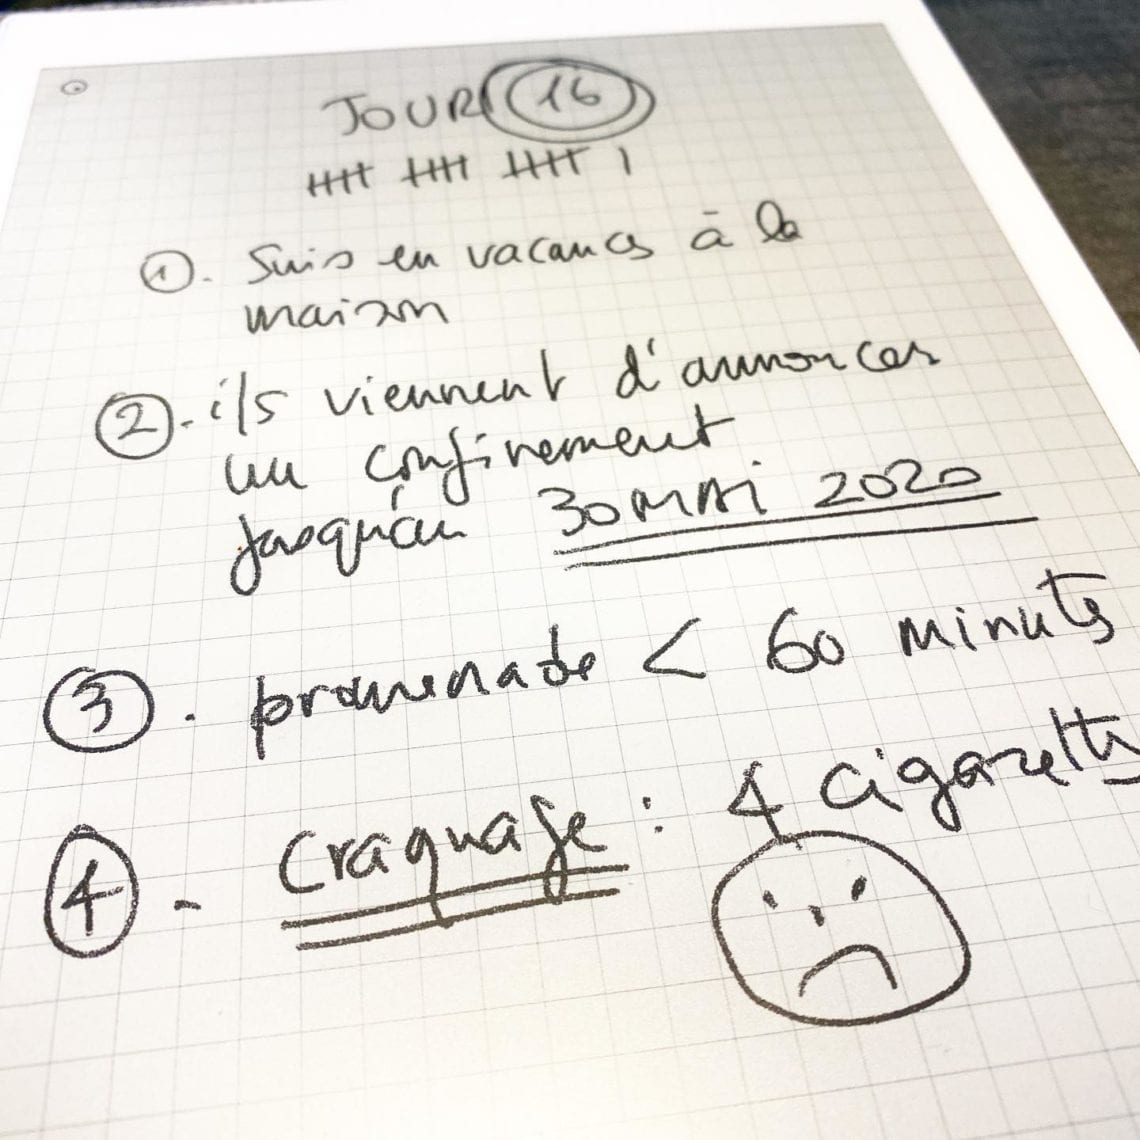 JOUR 16
1. Suis en vacances à la
maison
2. ils viennent d'annoncer
un confinement
jusqu'au 30 MAi 2020
3. promenade < 60 minutes
4. Craquage : 4 cigarettes